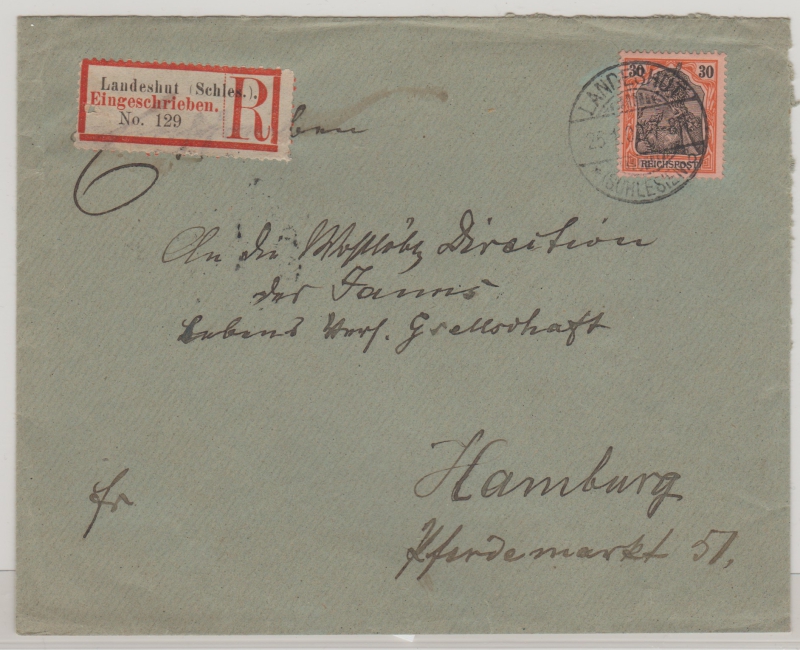 Landeshut (Schles.).
Eingeschrieben.
No. 129
R
30 30
REICHSPOST
LANDESHUT
(SCHLESIEN)
6
An die Direction
der Janus
Lebens Vers. Gsellschaft
Hamburg
Pferdemarkt 51.
fr